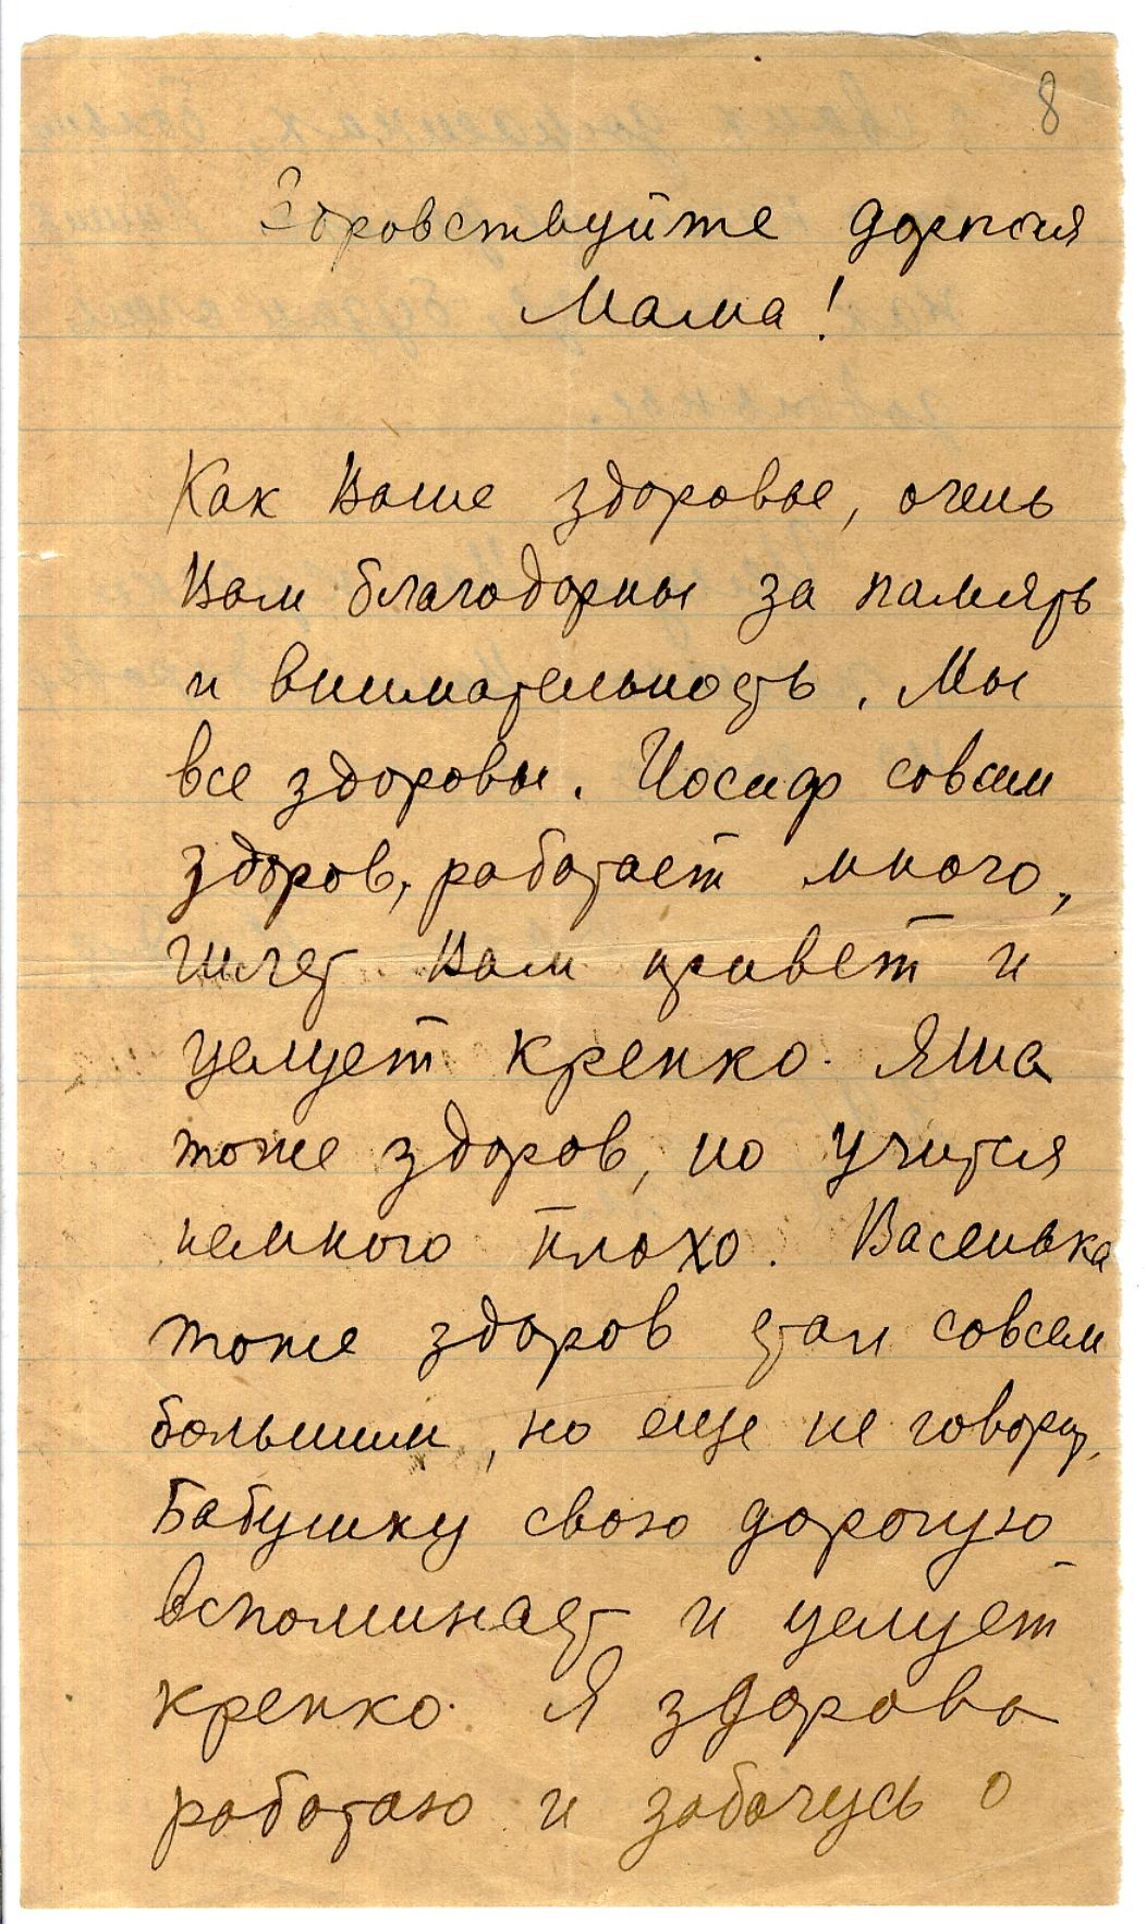 8
Здравствуйте дорогая
Мама!
Как Ваше здоровье, очень
Вам благодарны за память
и внимательность. Мы
все здоровы. Иосиф совсем
здоров, работает много,
шлет Вам привет и
целует крепко. Яша
тоже здоров, но учится
немного плохо. Васенька
тоже здоров стал совсем
большим, но еще не говорит.
Бабушку свою дорогую
вспоминает и целует
крепко. Я здорова
работаю и забочусь о